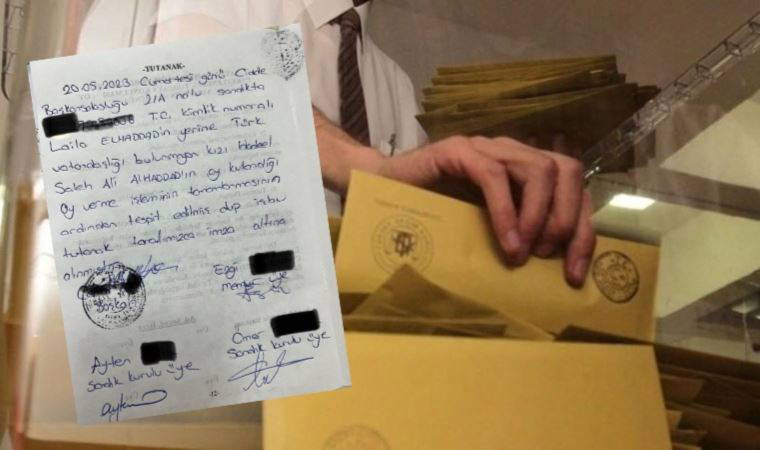 -TUTANAK-
20.05.2023 Cumartesi günü Cidde
Başkonsolosluğu 21A nolu sandıkta
T.C. kimlik numaralı
Laila ELHADDAD'ın yerine Türk
vatandaşlığı bulunmayan kızı
Saleh Ali AlHADDAD'ın oy kullandığı
Oy verme işleminin tamamlanmasının
ardından tespit edilmiş olup işbu
tutanak tarafımızca imza altına
alınmıştır.
Başkan
Ezgi
memur üye
Ayten
Sandık kurulu üye
Ömer
Sandık kurulu üye
Ayten
-12-